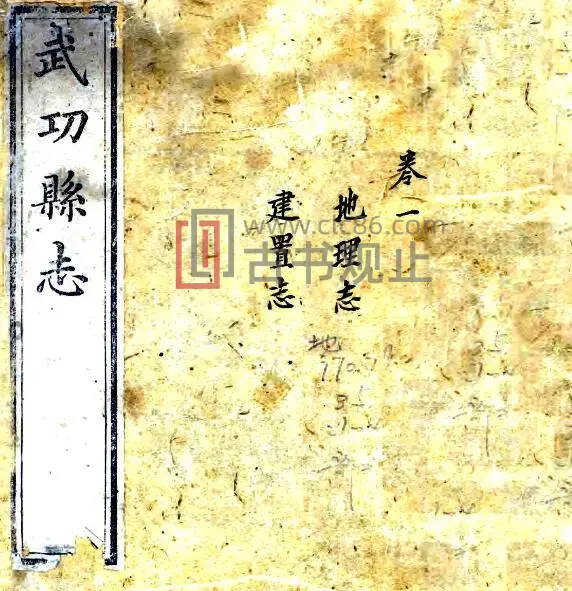 武功縣志
卷一
地理志
建置志
www.ctc86.com
古书观止
地